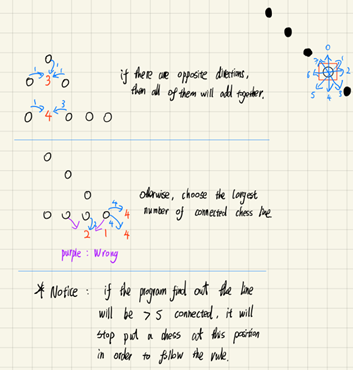 0
1
1 3 1
2
if there are opposite directions,
then all of them will add together.
5 4 3
1 4 3
otherwise, choose the largest
number of connected chess line
4
4
4
2 1 4
purple : Wrong
* Notice : if the program find out the line
will be > 5 connected, it will
stop put a chess at this position
in order to follow the rule.